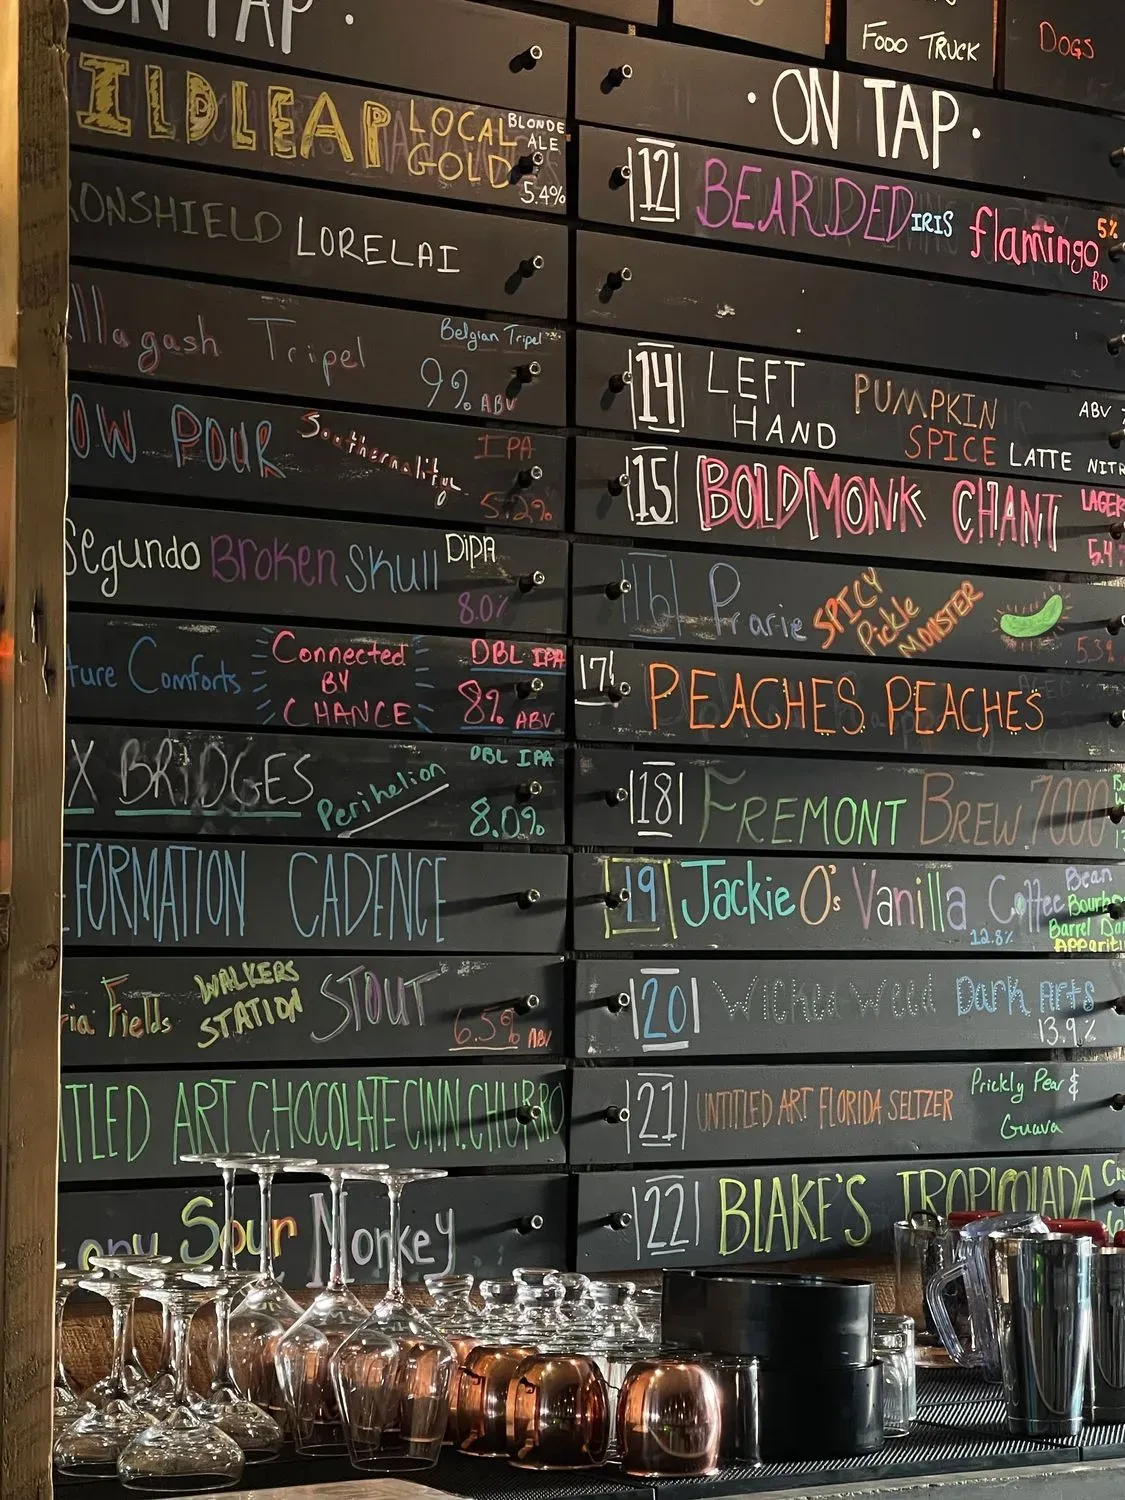 ON TAP .
ILDLEAP LOCAL GOLD BLONDE ALE 5.4%
RONSHIELD LORELAI
llagash Tripel Belgian Tripel 9% ABV
OW POUR Southernality IPA 5.2%
Segundo Broken Skull DIPA 8.0%
ture Comforts Connected BY CHANCE DBL IPA 8% ABV
X BRIDGES Perihelion DBL IPA 8.0%
FORMATION CADENCE
ria Fields WALKERS STATION STOUT 6.5% ABV
TLED ART CHOCOLATE CINN. CHURRO
ony Sour Monkey
FOOD TRUCK
DOGS
· ON TAP ·
12 BEARDED IRIS flamingo RD 5%
14 LEFT HAND PUMPKIN SPICE LATTE NITR ABV
15 BOLD MONK CHANT LAGER 5.4
16 Prarie SPICY Pickle MONSTER 5.3%
17 PEACHES PEACHES
18 FREMONT BREW 7000
19 Jackie O's Vanilla Coffee Bean Bourb Barrel Dar Appariti 12.8%
20 Wicked Weed Dark Arts 13.9%
21 UNTITLED ART FLORIDA SELTZER Prickly Pear & Guava
22 BLAKE'S TROPICOLADA Ci